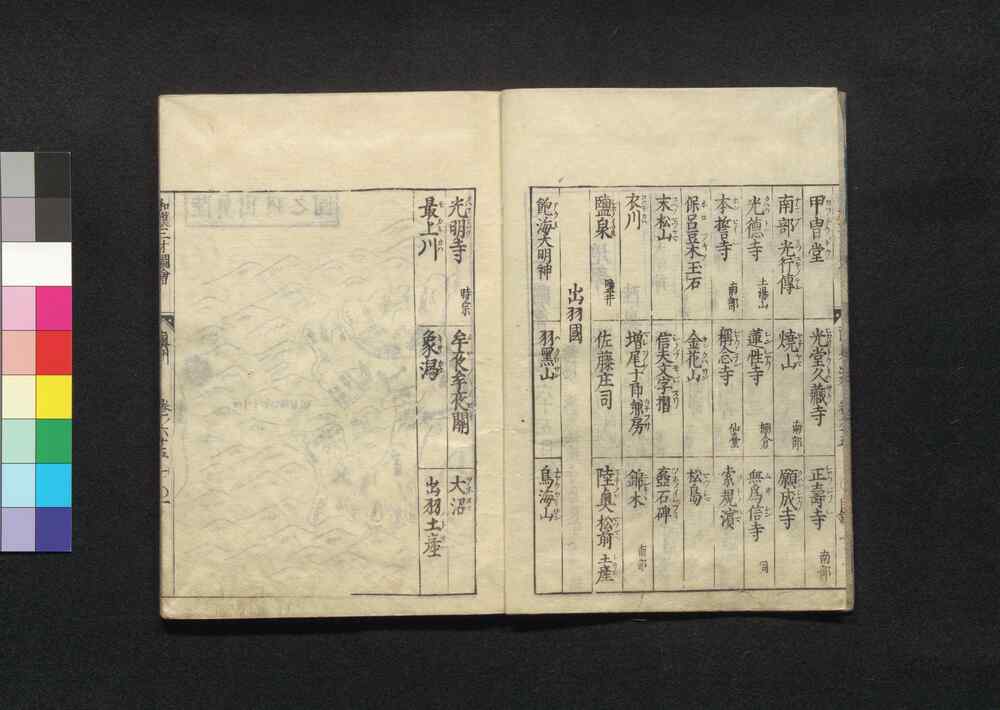 甲冑堂
光堂久藏寺
正壽寺 南部
南部光行傳
燒山 南部
願成寺
光德寺 土湯山
蓮性寺 棚倉
無爲信寺 同
本誓寺 南部
稱念寺 仙臺
索規濱
保呂豆木玉石
金花山
松島
末松山
信夫文字摺
壷石碑
衣川
增尾十郎兼房
錦木 南部
鹽泉 鹽井
佐藤庄司
陸奥松前土產
出羽國
飽海大明神
羽黑山
鳥海山
光明寺 時宗
牟夜牟夜關
大沼
最上川
象潟
出羽土產
和漢三才圖會
卷之六十五